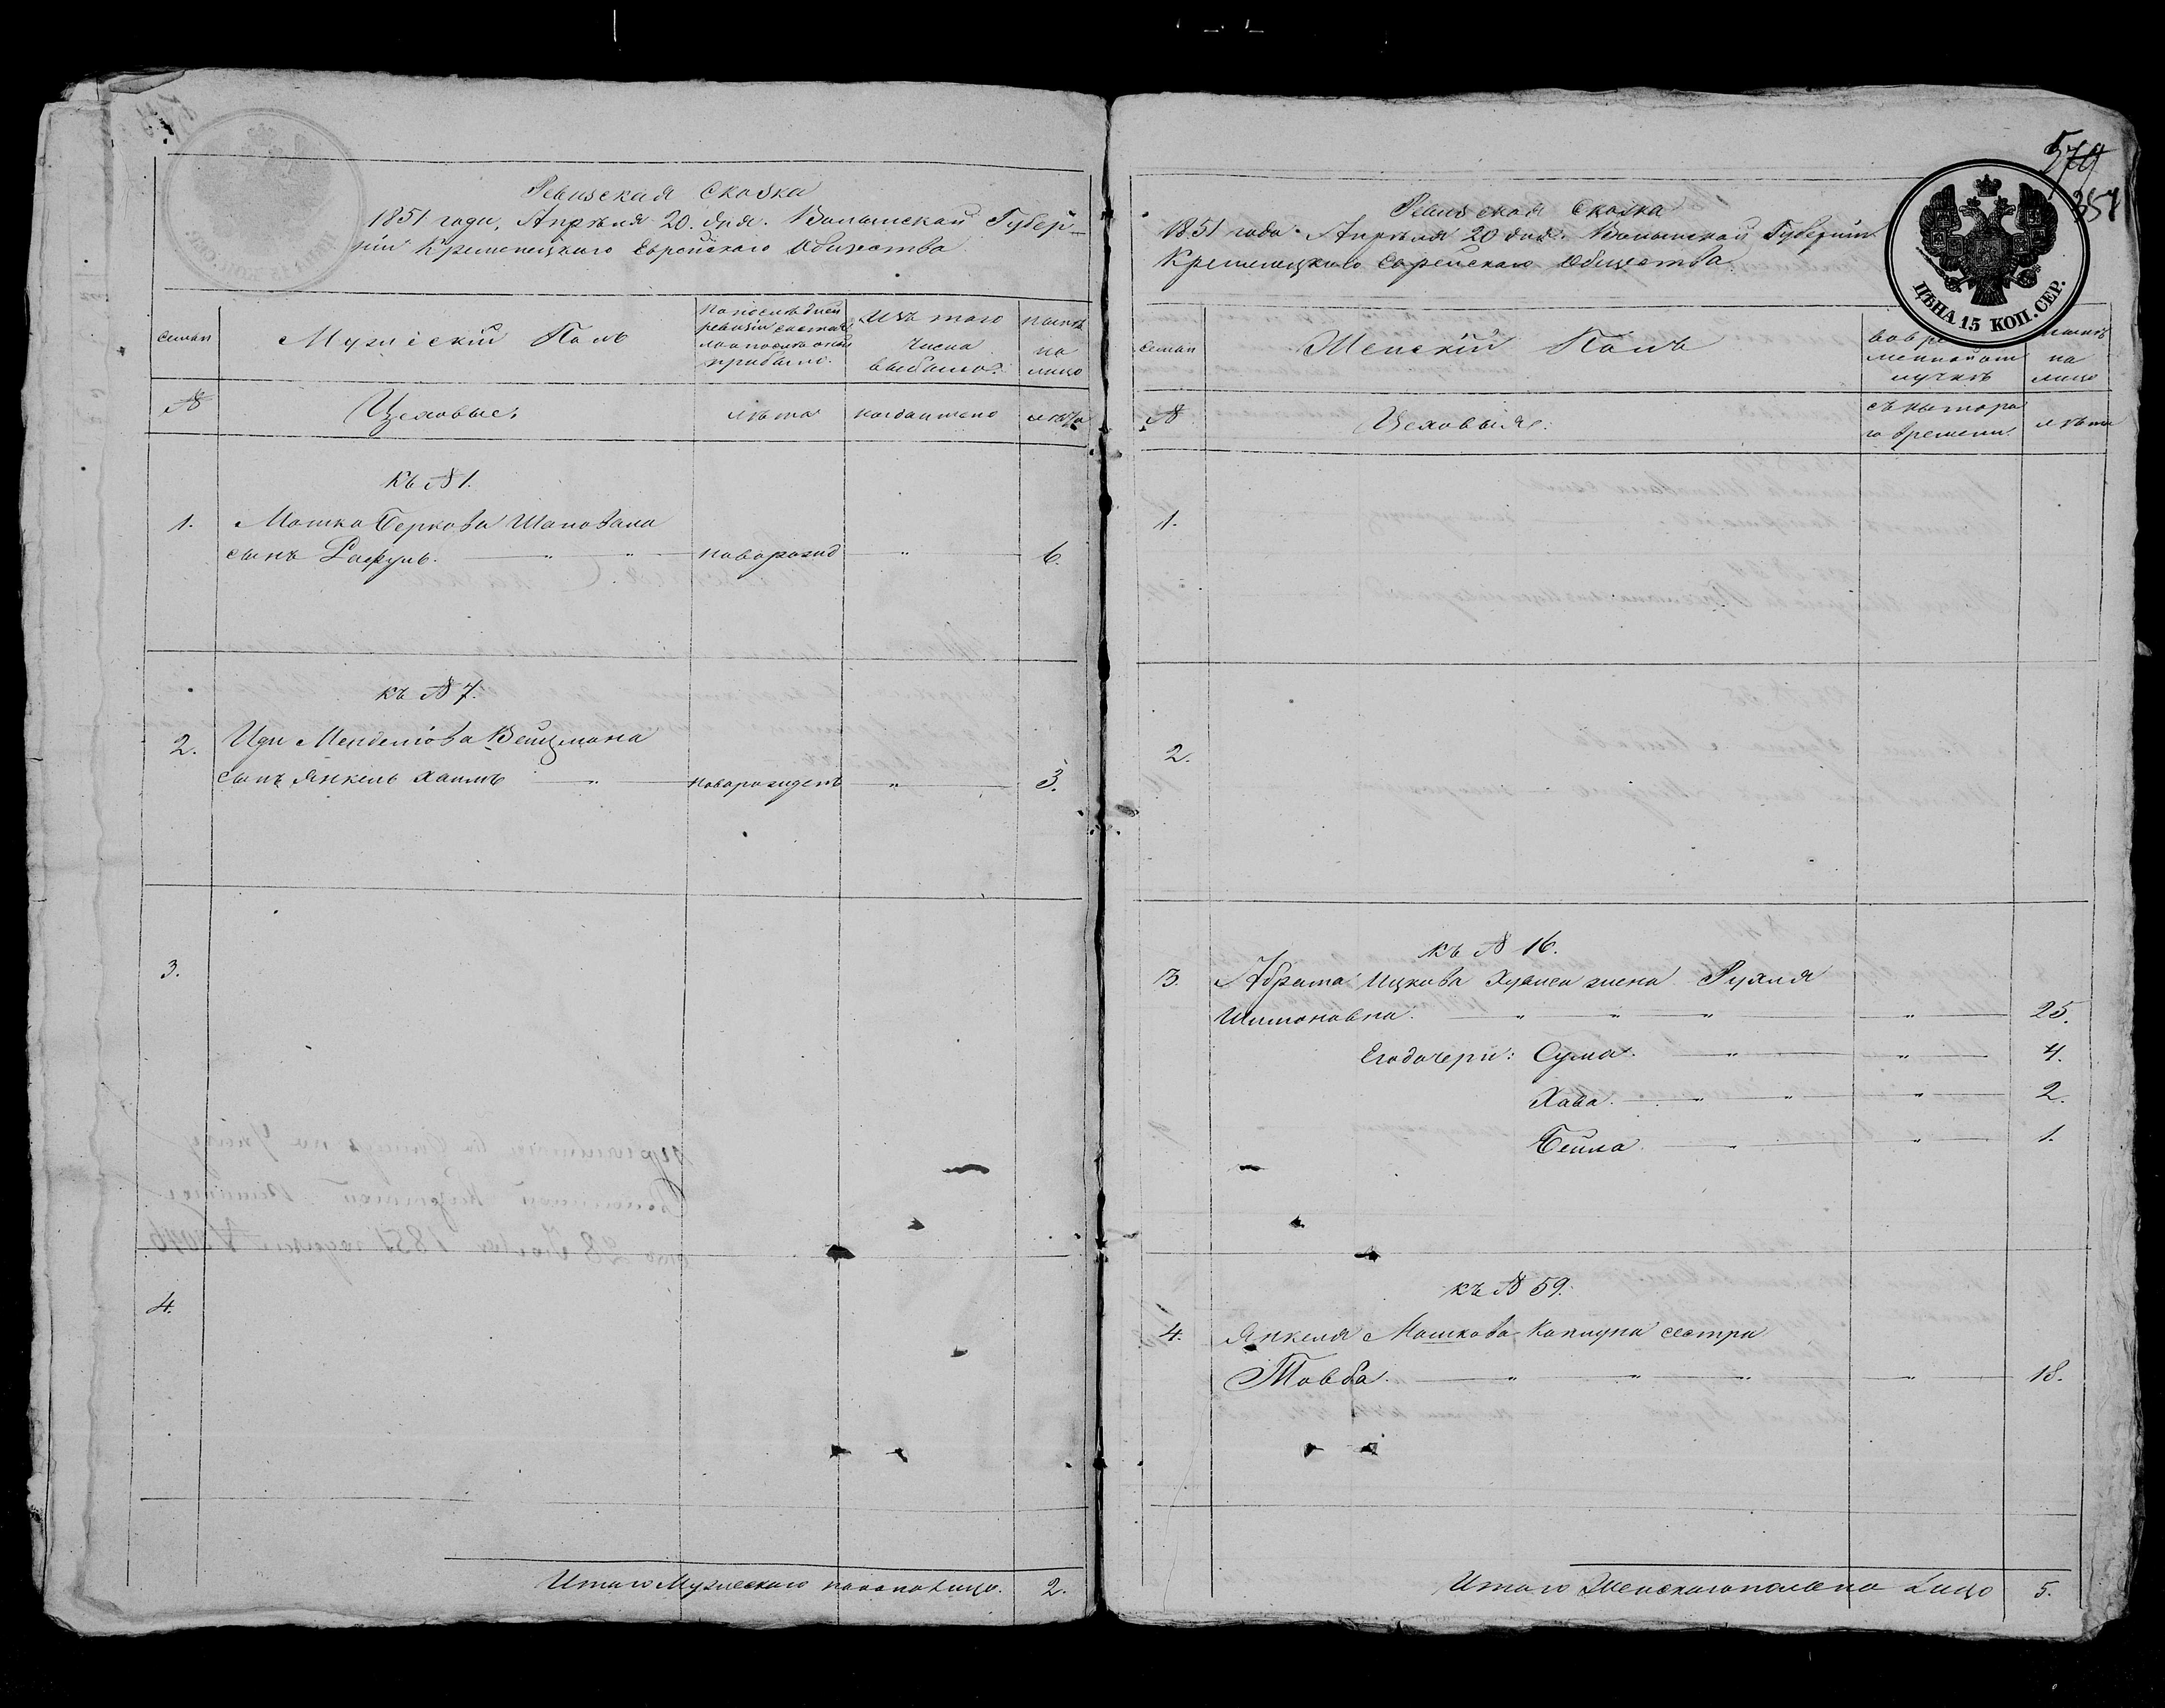 Ревизская Сказка
1851 года, Апрѣля 20. дня. Волынской Губер-
ніи Кременецкаго Еврейскаго Общества
Семьи
Мужескій Полъ
По послѣдней
ревизіи состоя
ло и послѣ оной
прибыло.
Изъ того
числа
выбыло.
нынѣ
на
лицо
№
Цеховые:
лѣта
когда имено
лѣта
къ № 1.
1. Мошка Беркова Шаповала
сынъ Рафуль. новорожд 6.
къ № 7.
2. Ицн Менделіова Вейцмана
сынъ Янкель Хаимъ новорожденъ 3.
3.
4.
Итого Мужескаго пола на Лицо. 2.
579
351
ЦѢНА 15 КОП. СЕР.
Ревизская Сказка
1851 года Апрѣля 20 дня. Волынской Губерніи
Кременецкаго Еврейскаго Общества
Семьи
Женскій Полъ
во вре
менной от
лучкѣ
нынѣ
на
лицо
№
Цеховыя:
съ котора
го времени.
лѣта
1.
2.
къ № 16.
3. Абрама Ицкова жена Рухля
Шимоновна. 25.
Его дочери: Сума. 4.
Хава. 2.
Бейла. 1.
къ № 59.
4. Янкеля Мошкова Капицы сестра
Товба. 18.
Итого Женскаго пола на Лицо 5.